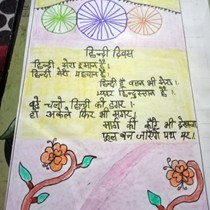 हिन्दी दिवस
हिन्दी मेरा इमान है।
हिन्दी मेरी पहचान है।
हिन्दी है वतन भी मेरा।
प्यारा हिन्दुस्तान है।
बढ़े चलो हिन्दी की डगर।
हो अकेले फिर भी मगर।
मार्ग की काँटे भी देखना
फूल बन जायेंगे पथ पर।